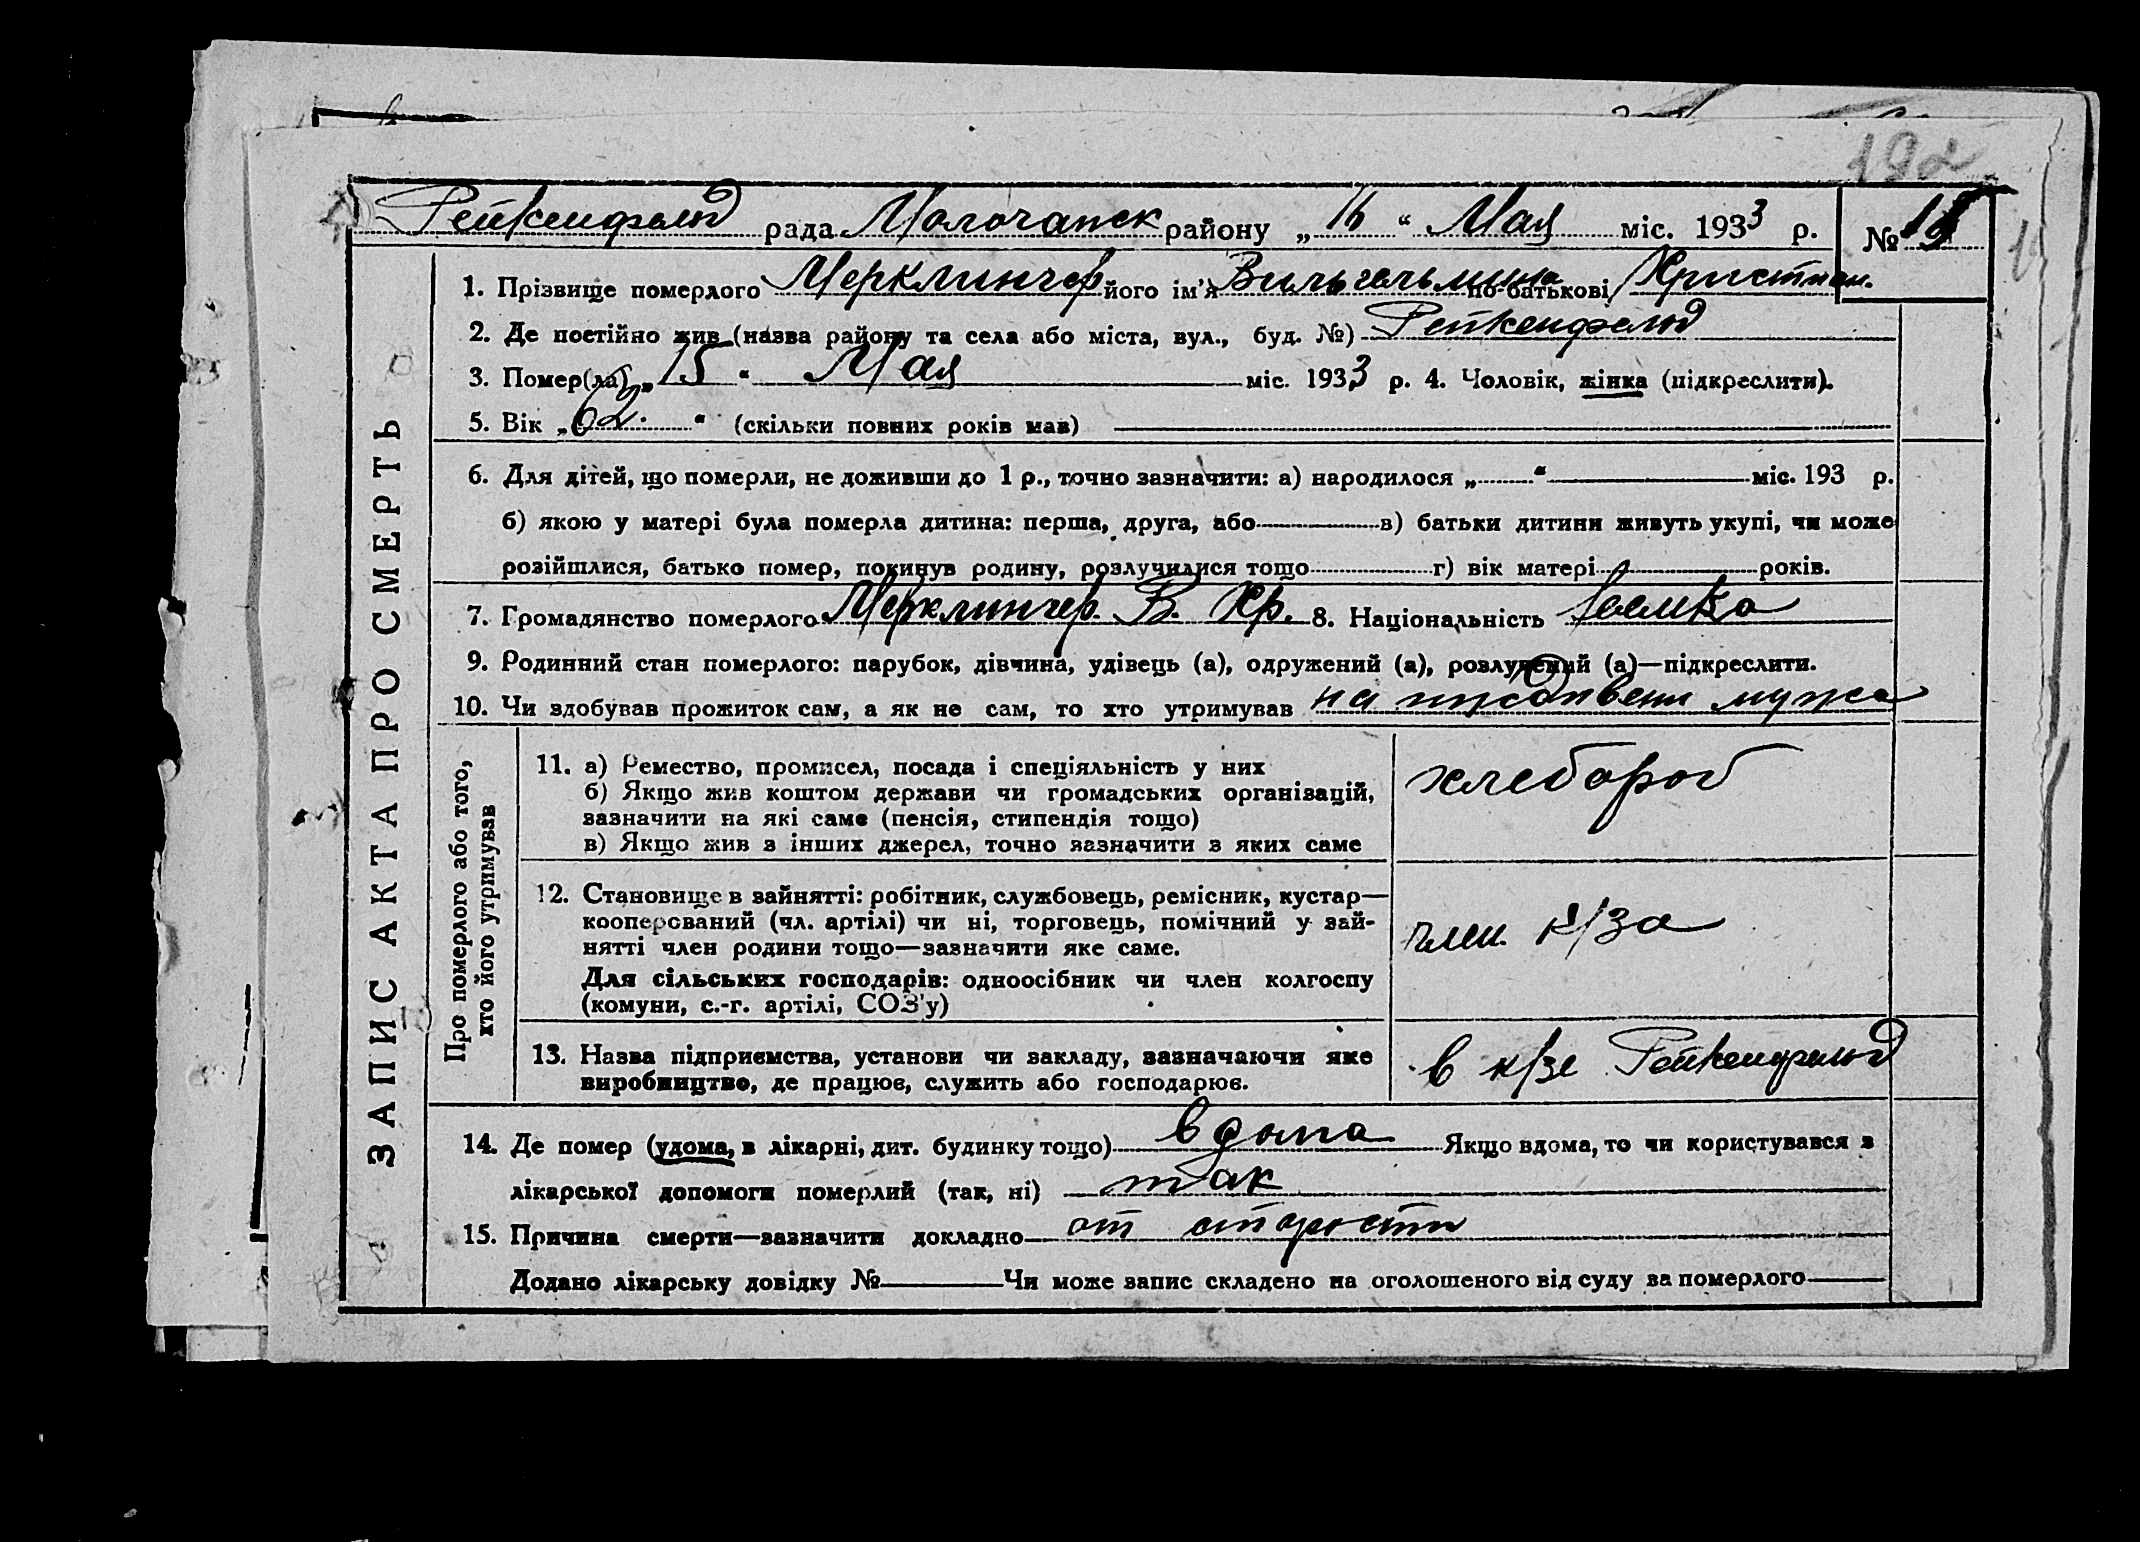 192
Рейкенфельд рада Молочанск району „16“ Мая міс. 1933 р. №
1. Прізвище померлого Мерклингер його ім'я Вильгельмина по-батькові Христиан.
2. Де постійно жив (назва району та села або міста, вул., буд. №) Рейкенфельд
3. Помер(ла) „15“ Мая міс. 1933 р. 4. Чоловік, жінка (підкреслити).
5. Вік „62.“ (скільки повних років мав)
6. Для дітей, що померли, не доживши до 1 р., точно зазначити: а) народилося „“ міс. 193 р.
б) якою у матері була померла дитина: перша, друга, або в) батьки дитини живуть укупі, чи може
розійшлися, батько помер, покинув родину, розлучилися тощо г) вік матері років.
7. Громадянство померлого Мерклингер. В. Хр. 8. Національність
9. Родинний стан померлого: парубок, дівчина, удівець (а), одружений (а), розлучений (а)—підкреслити.
10. Чи здобував прожиток сам, а як не сам, то хто утримував на мужа
ЗАПИС АКТА ПРО СМЕРТЬ
Про померлого або того,
хто його утримував
11. а) Ремество, промисел, посада і спеціяльність у них
б) Якщо жив коштом держави чи громадських організацій,
зазначити на які саме (пенсія, стипендія тощо)
в) Якщо жив з інших джерел, точно зазначити з яких саме
хлебороб
12. Становище в зайнятті: робітник, службовець, ремісник, кустар—
кооперований (чл. артілі) чи ні, торговець, помічний у зай-
нятті член родини тощо—зазначити яке саме.
Для сільських господарів: одноосібник чи член колгоспу
(комуни, с.-г. артілі, СОЗ'у)
член. к/за
13. Назва підприємства, установи чи закладу, зазначаючи яке
виробництво, де працює, служить або господарює.
в к/зе Рейкенфельд
14. Де помер (удома, в лікарні, дит. будинку тощо) вдома Якщо вдома, то чи користувався з
лікарської допомоги померлий (так, ні) так
15. Причина смерти—зазначити докладно от старости
Додано лікарську довідку № Чи може запис складено на оголошеного від суду за померлого